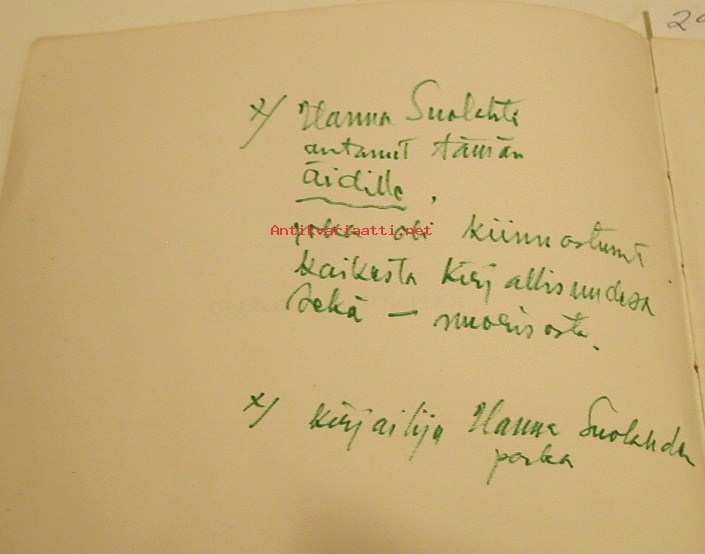 29
x/ Hanna Suolahti
antanut tämän
äidille,
joka oli kiinnostunut
Antikvariaatti.net
kaikesta kirjallisuudesta
sekä — nuorisosta.
x/ Kirjailija Hanna Suolahden
poika